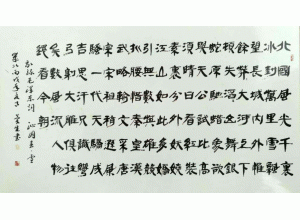 北國風光千里
冰封萬里雪飄
望長城內外惟
餘莽莽大河上下
頓失滔滔山舞銀
蛇原馳蠟象欲
與天公試比高
須晴日看紅裝
素裹分外妖嬈
江山如此多嬌
引無數英雄競
折腰惜秦皇漢
武略輸文采唐
宗宋祖稍遜風
騷一代天驕成
吉思汗只識彎
弓射大雕俱往
矣數風流人物
還看今朝
毛澤東詞 沁園春 雪